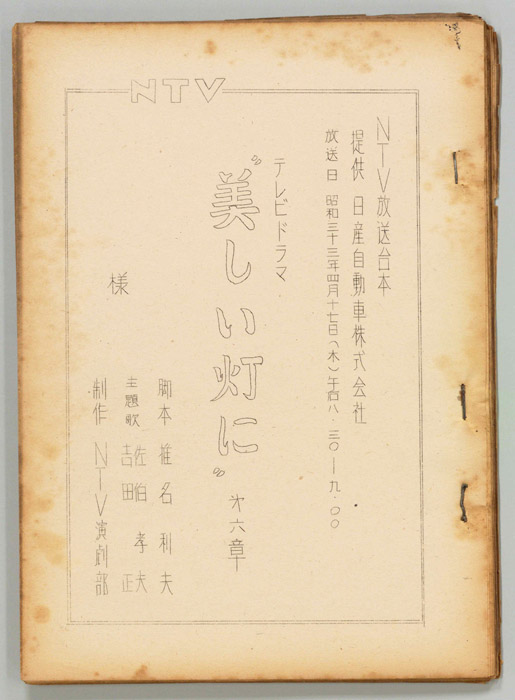 NTV
NTV放送台本
提供 日産自動車株式会社
放送日 昭和三十三年四月十七日(木)午后八.三〇―九.〇〇
テレビドラマ
“美しい灯に” 才六章
様
脚本 椎名利夫
主題歌 佐伯孝夫
吉田正
制作 NTV演劇部